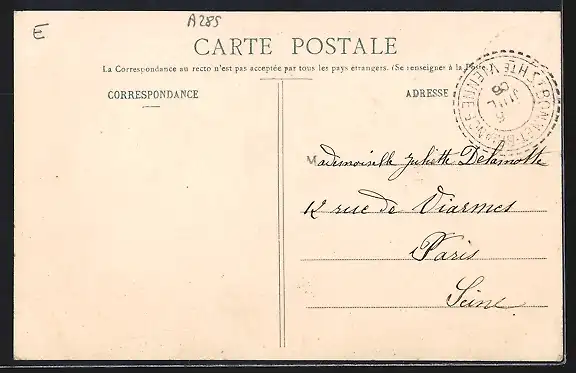 E
A285
CARTE POSTALE
La Correspondance au recto n'est pas acceptée par tous les pays étrangers. (Se renseigner à la Poste.
CORRESPONDANCE
ADRESSE
Mademoiselle Juliette Delamotte
12 rue de Viarmes
Paris
Seine
HTE VIENNE
JUIL